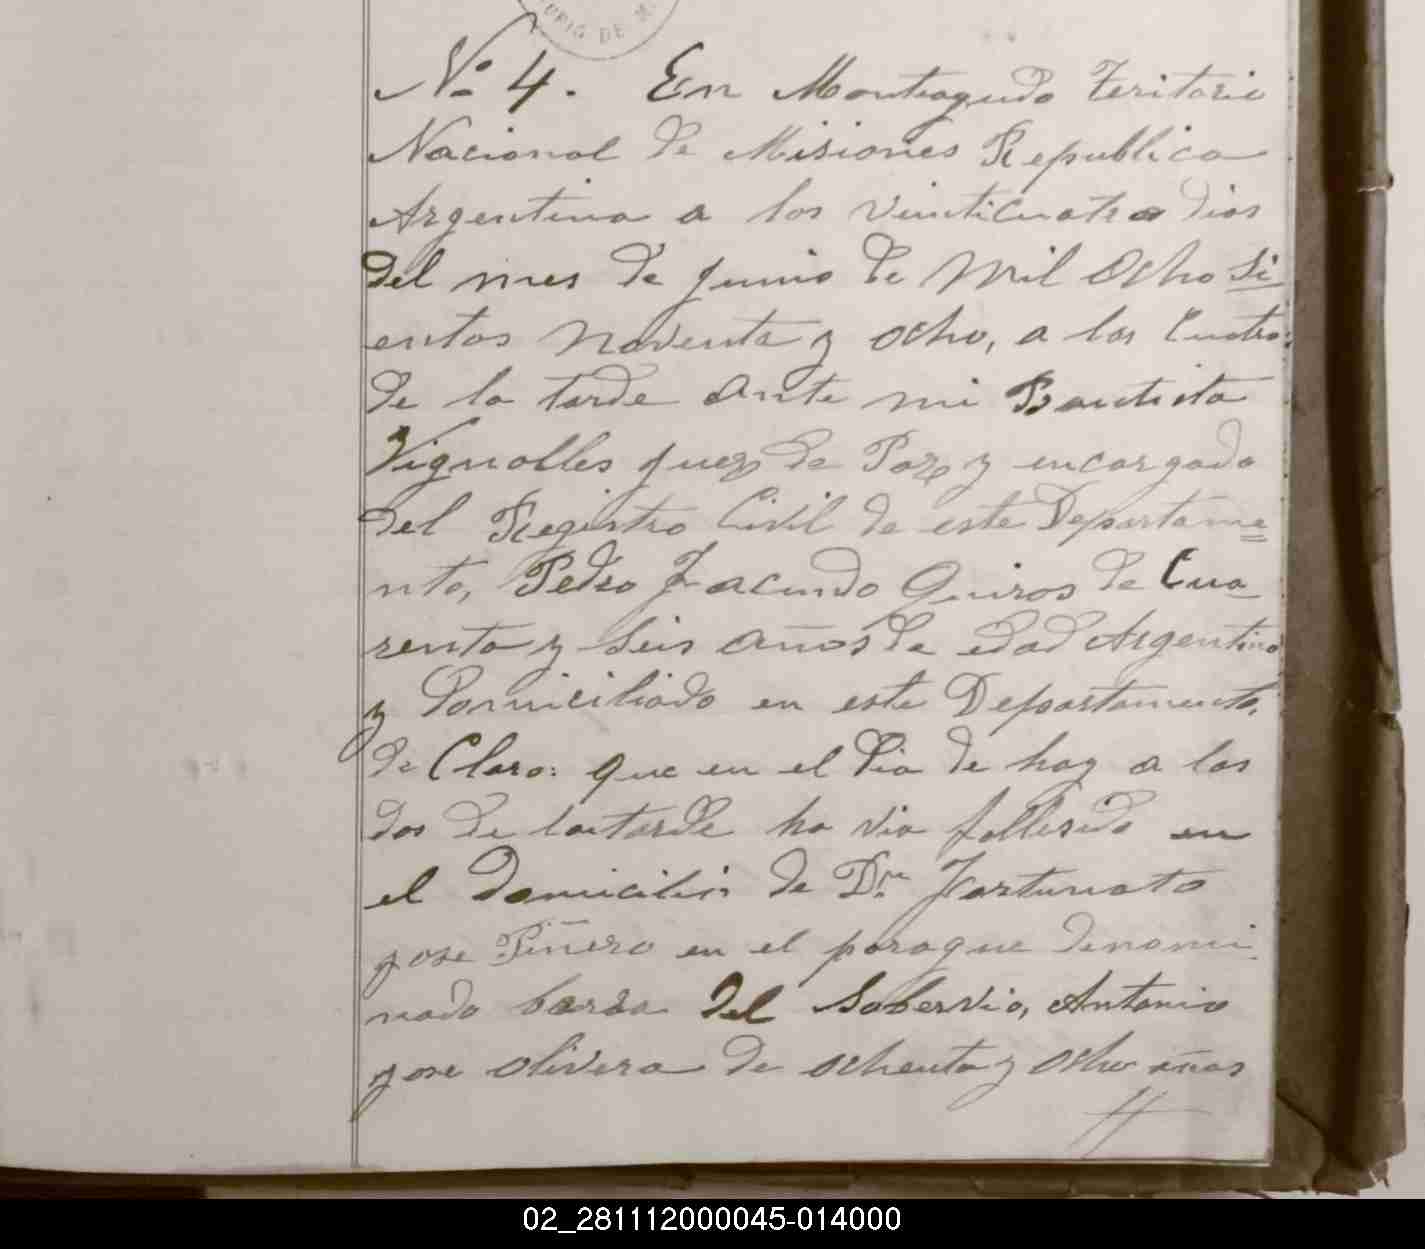 No. 4. En Monteagudo Teritorio
Nacional de Misiones Republica
Argentina a los veinticuatro dias
del mes de junio de Mil Ocho Si
entos Noventa y ocho, a las Cuatro
de la tarde ante mi Bautista
Vignolles juez de Paz y encargado
del Registro Civil de este Departame
nto, Pedro Facundo Quiros de Cua
renta y seis años de edad Argentino
y Domiciliado en este Departamento,
de Claro: que en el Dia de hoy a las
dos de la tarde ha via fallesido en
el domicilio de Dn. Fortunato
jose Piñero en el parage denomi
nado barra del Sobervio, Antonio
jose olivera de ochenta y ocho años
02_281112000045-014000